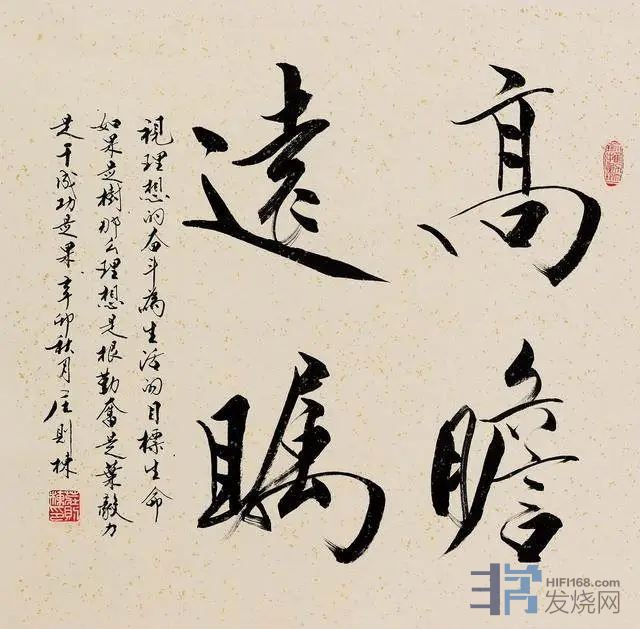 高瞻
遠瞩
視理想的奋斗為生活的目標生命
如果是樹那么理想是根勤奮是葉毅力
是干成功是果辛卯秋月庄則棟
莊則棟印
HIFI168.com
发烧网